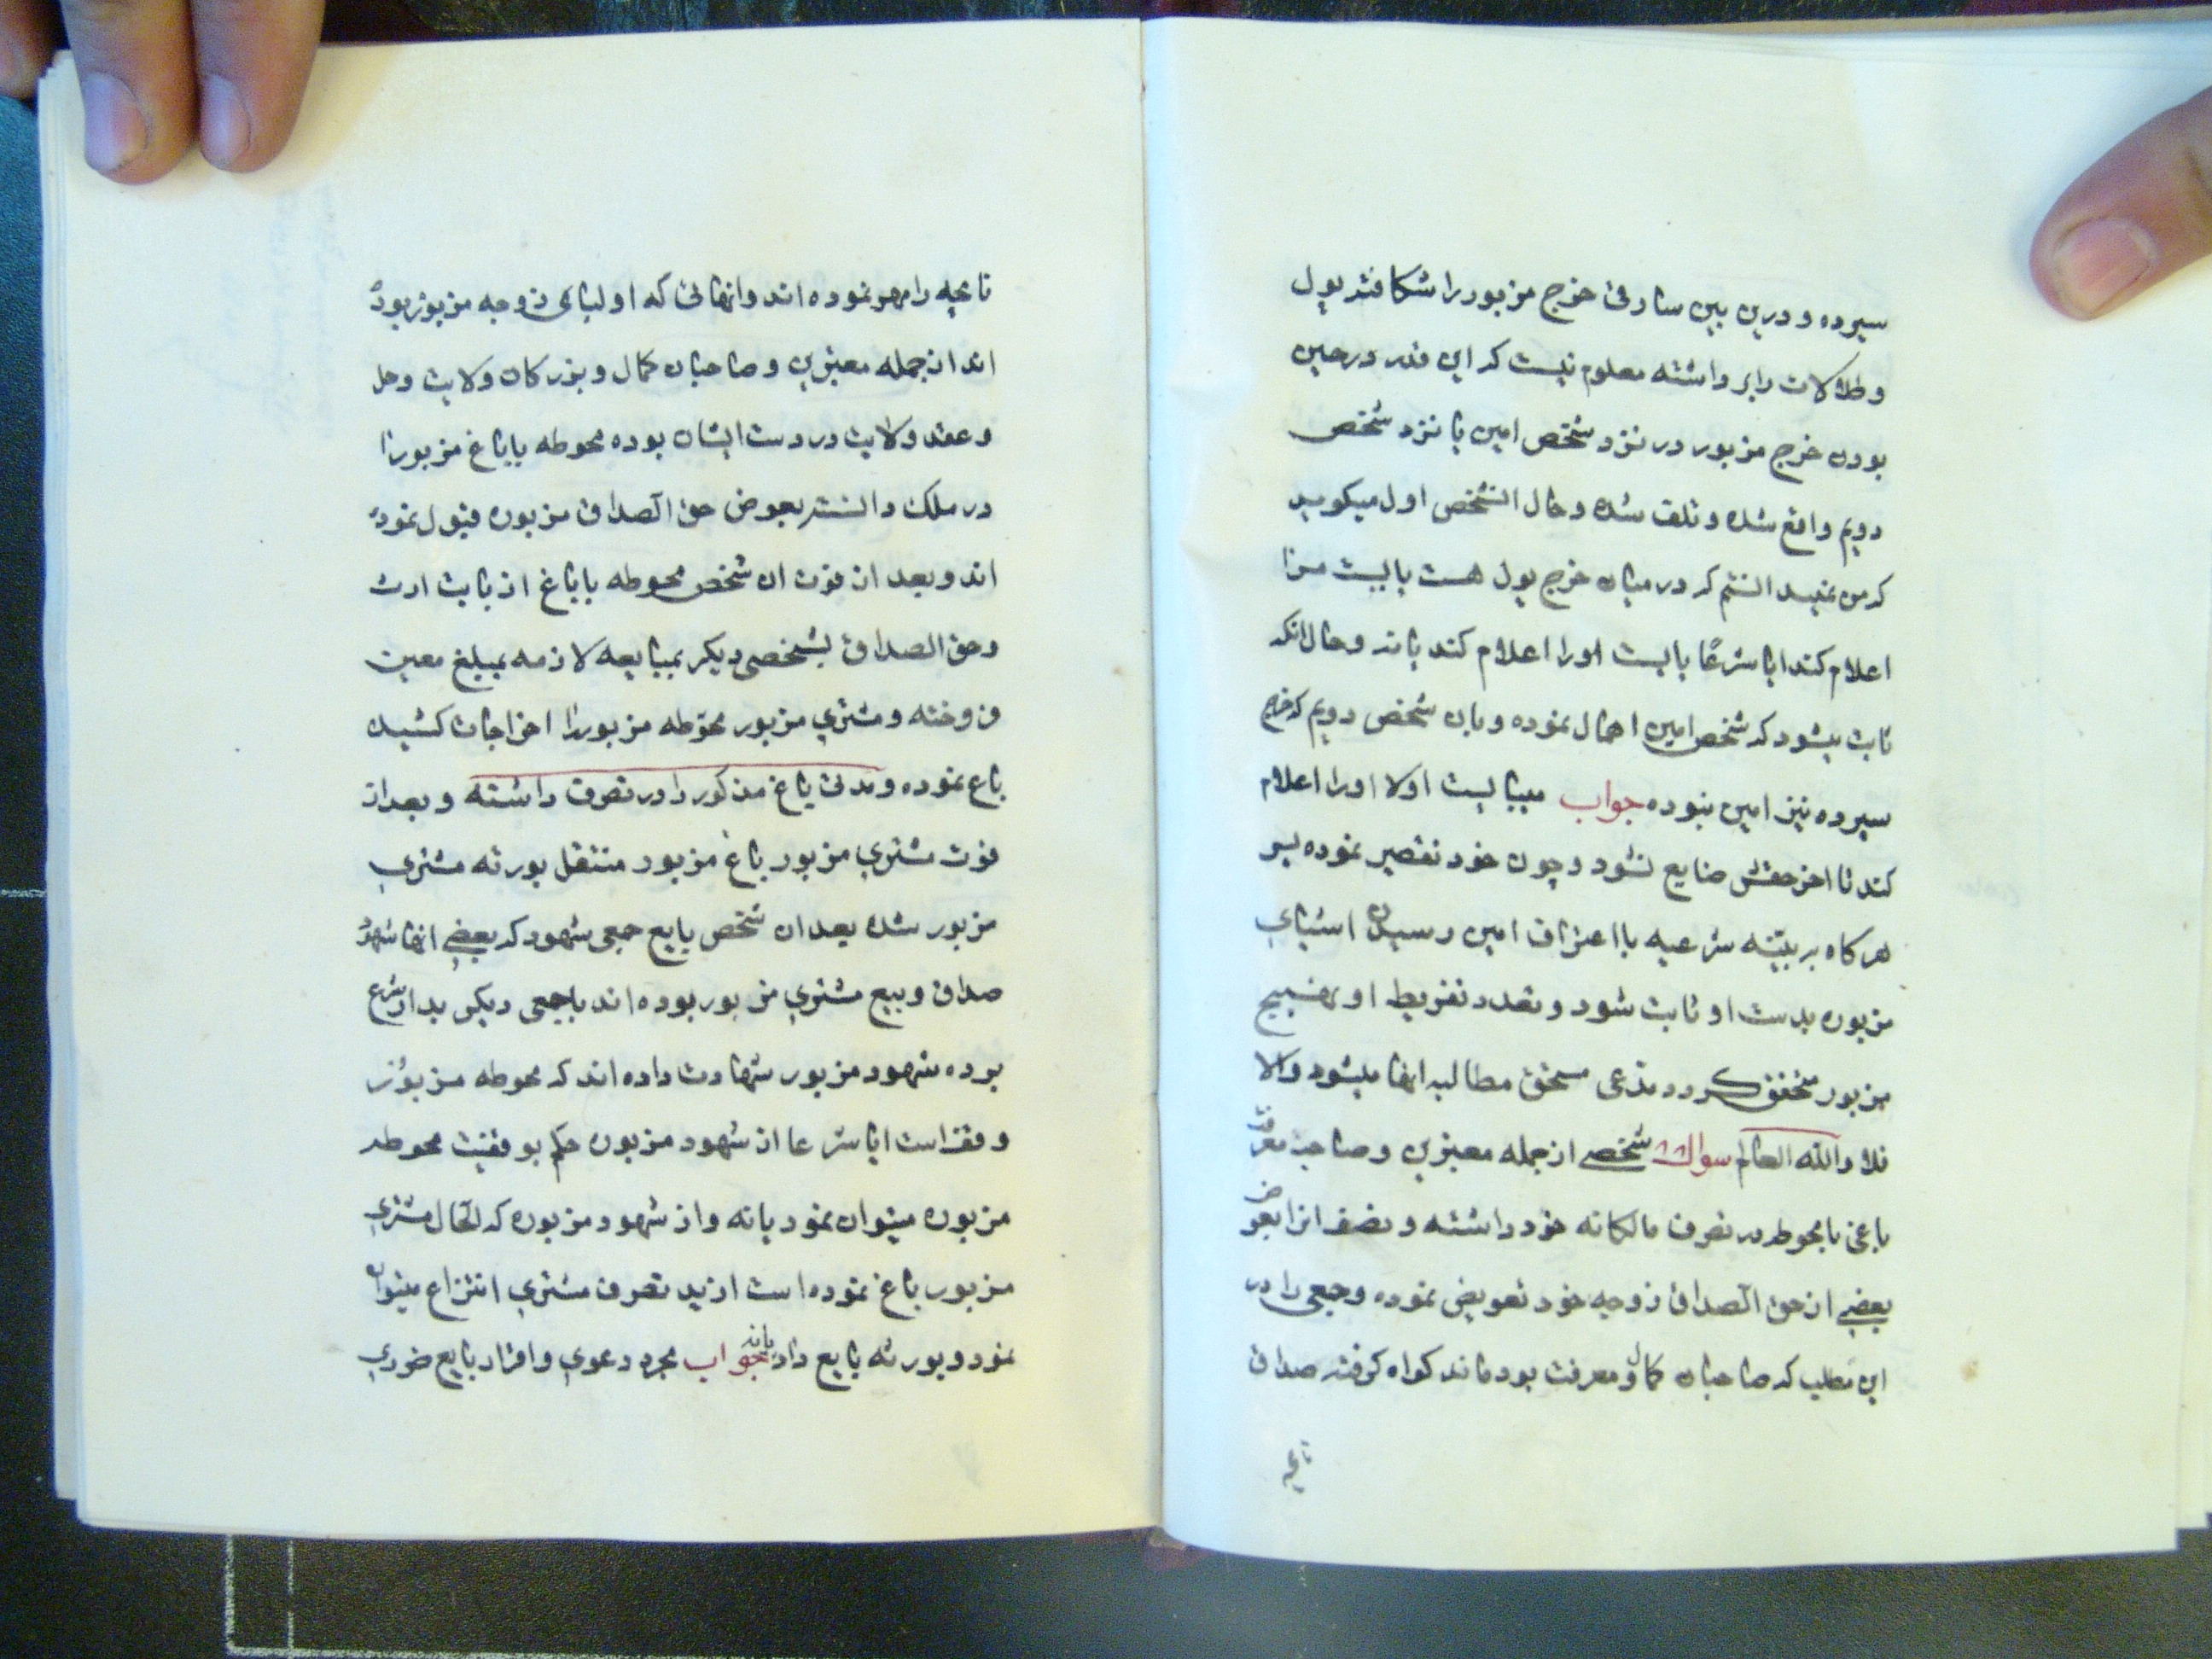 سپرده و درین بین سارقی خرج مزبور را شکافته پول
و طلا کلات را بر داشته معلوم نیست که این قدر در حین
بودن خرج مزبور در نزد شخص امین یا نزد شخص
دویم واقع شده و تلف شده و حال الشخص اول میکوید
که من نمیدانستم که در میان خرج پول هست بایست مرا
اعلام کند ایا شرعًا بایست اورا اعلام کند یا نه و حال انکه
ثابت میشود که شخص امین اهمال نموده و بان شخص دویم که خرج
سپرده نیز امین نبوده جواب میبایست اولا اورا اعلام
کند تا اخر حقش ضایع نشود و چون خود تقصیر نموده پس
هر کاه به بیّنه شرعیه با اعتراف امین رسیدن اشیای
مزبوره بدست او ثابت شود و تعدد تفریط او بهنهج
مزبور متحقق کردد مدعی مستحق مطالبه انها میشود والا
فلا والله العالم سوال شخصے از جمله معتبرین و صاحب معرفت
باغی با محوطه در تصرف مالکانه خود داشته و نصف انرا بعوض
بعضے از حق الصداق زوجه خود تعویض نموده و جمعی را در
این مطلب که صاحبان کمال و معرفت بوده اند کواه کرفته صداق
نامچه
نامچه را مهر نموده اند و انهائی که اولیای زوجه مزبوره بوده
اند از جمله معتبرین و صاحبان کمال و بزرکان ولایت و حل
و عقد ولایت در دست ایشان بوده محوطه یا باغ مزبور را
در ملک دانسته بعوض حق الصداق مزبوره قبول نموده
اند و بعد از فوت ان شخص محوطه یا باغ از بابت ارث
و حق الصداق بشخصی دیکر بمبایعه لازمه بمبلغ معین
فروخته و مشتری مزبور محوّطه مزبور را اخراجات کشیده
باغ نموده و مدتی باغ مذکور را در تصرف داشته و بعد از
فوت مشتری مزبور باغ مزبور منتقل بورثه مشتری
مزبور شده بعد ان شخص بایع جمعی شهود که بعضے انها شهود
صداق و بیع مشتری مزبور بوده اند با جمعی دیکر بدار شرع
برده شهود مزبور شهادت داده اند که محوطه مزبوره
وقف است ایا شرعا از شهود مزبوره حکم بوقفیت محوطه
مزبوره میتوان نمود یا نه و از شهود مزبوره که الحال مشتری
مزبور باغ نموده است از ید تصرف مشتری انتزاع میتوان
نمود و بورثه بایع داد یا نه جواب مجرد دعوی و اقرار بایع ضرری